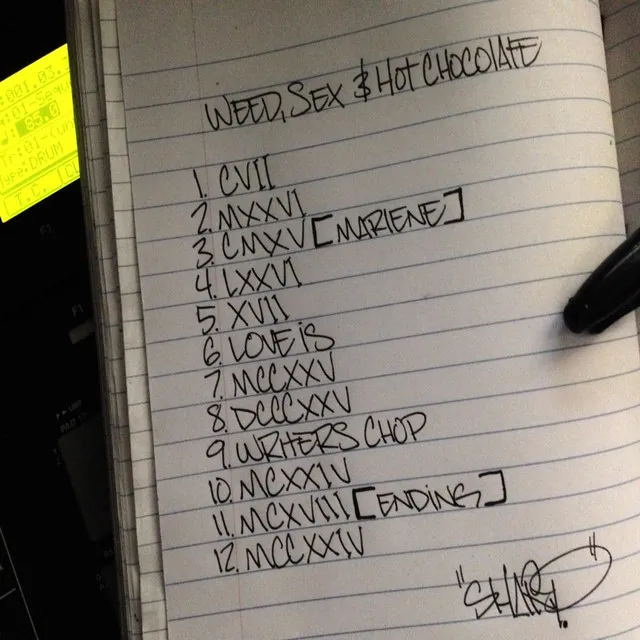 :001.03.
85.0
DRUM
WEED, SEX & HOT CHOCOLATE
1. CVII
2. MXXVI
3. CMXV [MARLENE]
4. LXXVI
5. XVII
6. LOVE IS
7. MCCXXV
8. DCCCXXV
9. WRITERS CHOP
10. MCXXIV
11. MCXVIII [ENDING]
12. MCCXXIV